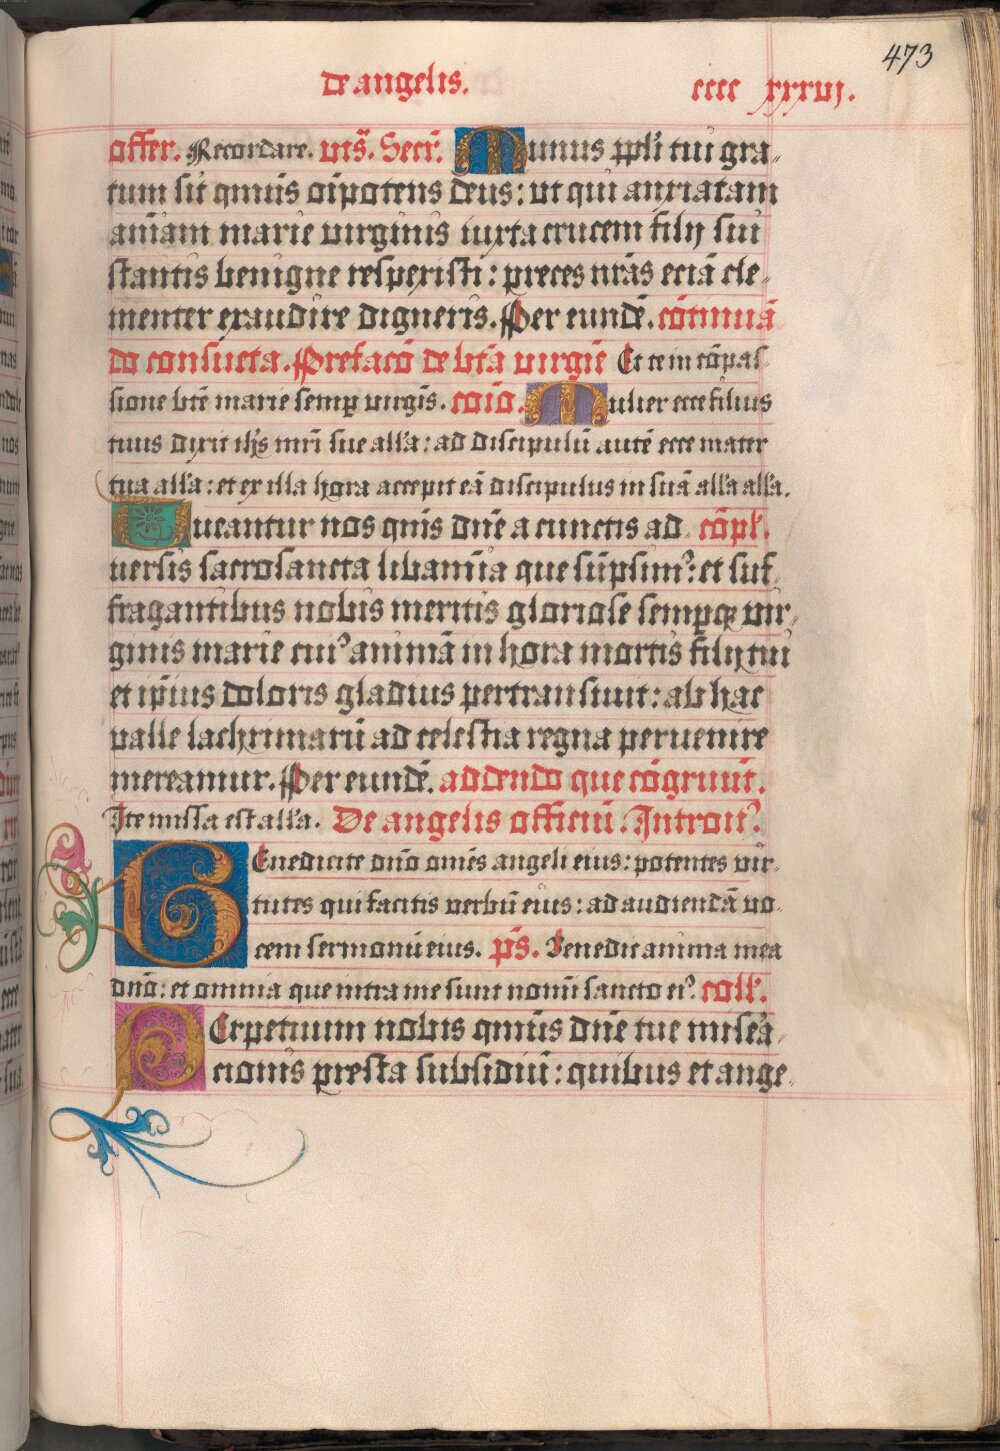 473
de angelis.
cccc xxxvj.
offer. Recordare. vts̄. Secr̄. Munus ppl̄i tui gra-
tum sit qm̄us oīpotens deus: vt qui anxiatam
anīam marie virginis iuxta crucem filij sui
stantis benigne respexisti: preces nr̄as eciā cle-
menter exaudire digneris. Per eundē. cōtinuā
do consueta. Prefacō de btā virgīe Et te in cōpas-
sione btē marie semp virgīs. cōiō. Mulier ecce filius
tuus dixit ih̄s mr̄i sue all'a: ad discipulū autē ecce mater
tua all'a: et ex illa hora accepit eā discipulus in suā all'a all'a.
Tueantur nos qm̄s dn̄e a cunctis ad cōpl'.
uersis sacrosancta libamīa que sūpsim9: et suf-
fragantibus nobis meritis gloriose sempqꝫ vir-
ginis marie cui9 animā in hora mortis filij tui
et ip̄ius doloris gladius pertransiuit: ab hac
valle lachrimarū ad celestia regna peruenire
mereamur. Per eundē. addendo que cōgruūt.
Ite missa est all'a. De angelis officiū. Introit9.
Benedicite dn̄o om̄es angeli eius: potentes vir-
tutes qui facitis verbū eius: ad audiendā vo-
cem sermonū eius. ps̄. Benedic anima mea
dn̄o: et omnia que intra me sunt nomī sancto ei9. coll'.
Perpetuum nobis qm̄us dn̄e tue mis'ea-
cionis presta subsidiū: quibus et ange-